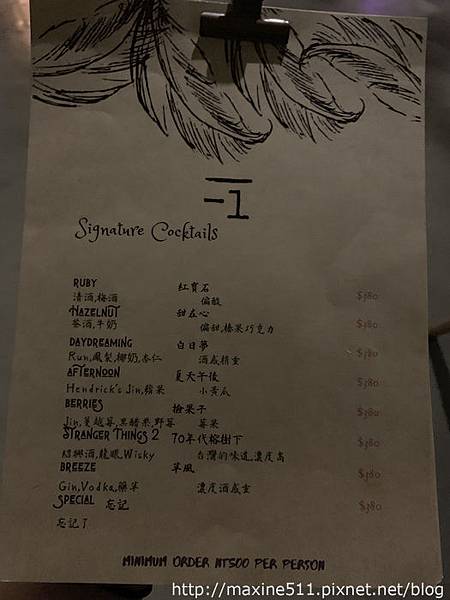 -1
Signature Cocktails
RUBY 紅寶石
清酒,梅酒 偏酸 $380
HAZELNUT 甜在心
茶酒,牛奶 偏甜,榛果巧克力 $380
DAYDREAMING 白日夢
Run,鳳梨,椰奶,杏仁 酒感稍重 $380
AFTERNOON 夏天午後
Hendrick's Jin,蘋果 小黃瓜 $380
BERRIES 撿果子
Jin,蔓越莓,黑醋栗,野莓 莓果 $380
STRANGER THINGS 2 70年代榕樹下
紹興酒,龍眼,Wisky 台灣的味道,濃度高 $380
BREEZE 草風
Gin,Vodka,藥草 濃度酒感重 $380
SPECIAL 忘記 $380
忘記了
MINIMUM ORDER NT500 PER PERSON
http://maxine511.pixnet.net/blog